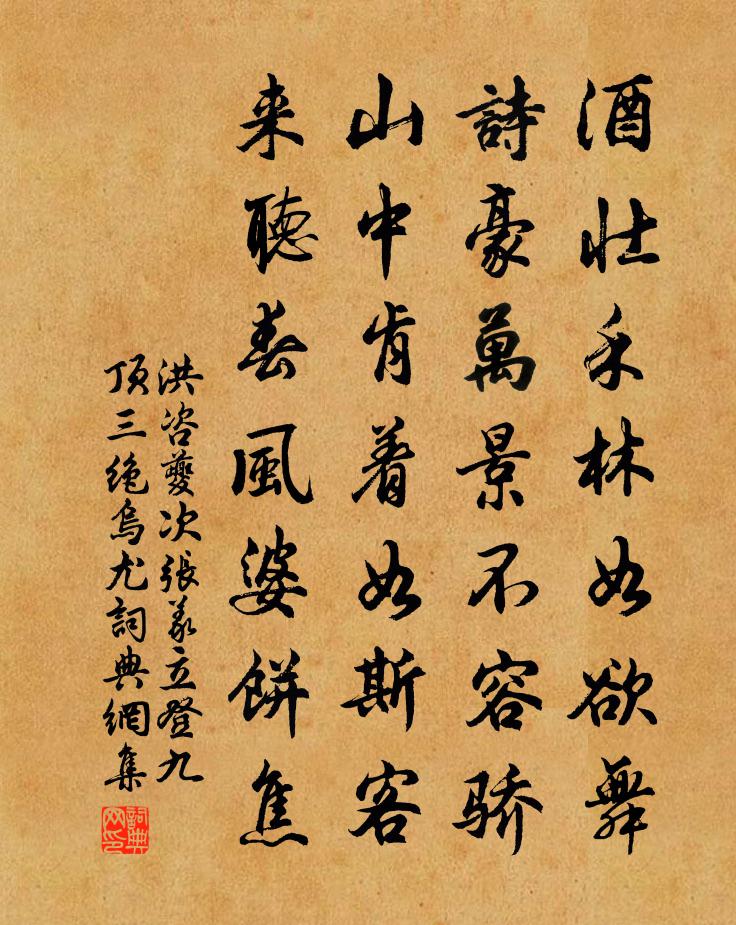 酒壮禾林如欲舞
詩豪萬景不容骄
山中肯着如斯客
来聽春風婆餅焦
洪咨夔次張義立登九
頂三绝烏尤詞典網集
詞典网印